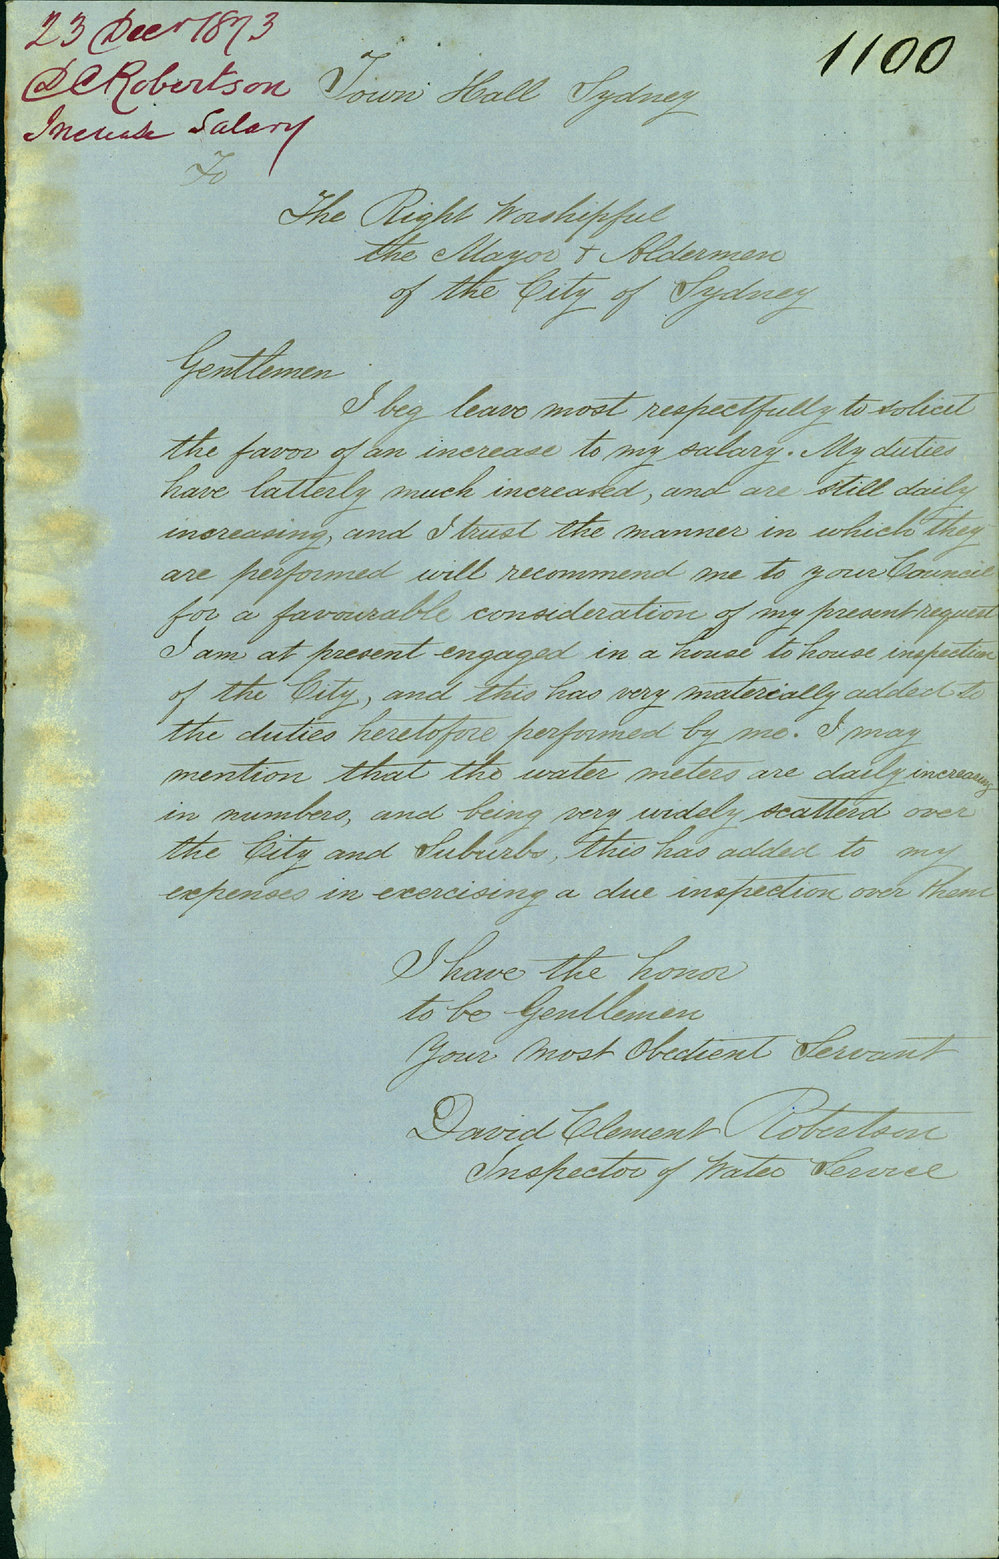 23 Decr 1873
D C Robertson
Increase Salary
1100
Town Hall Sydney
To
The Right Worshipful
the Mayor & Aldermen
of the City of Sydney
Gentlemen
I beg leave most respectfully to solicit
the favor of an increase to my salary. My duties
have latterly much increased, and are still daily
increasing, and I trust the manner in which they
are performed will recommend me to your Council
for a favourable consideration of my present request
I am at present engaged in a house to house inspection
of the City, and this has very materially added to
the duties heretofore performed by me. I may
mention that the water meters are daily increasing
in numbers, and being very widely scatterd over
the City and Suburbs, this has added to my
expenses in exercising a due inspection over them
I have the honor
to be Gentlemen
Your most obedient Servant
David Clement Robertson
Inspector of Water Service